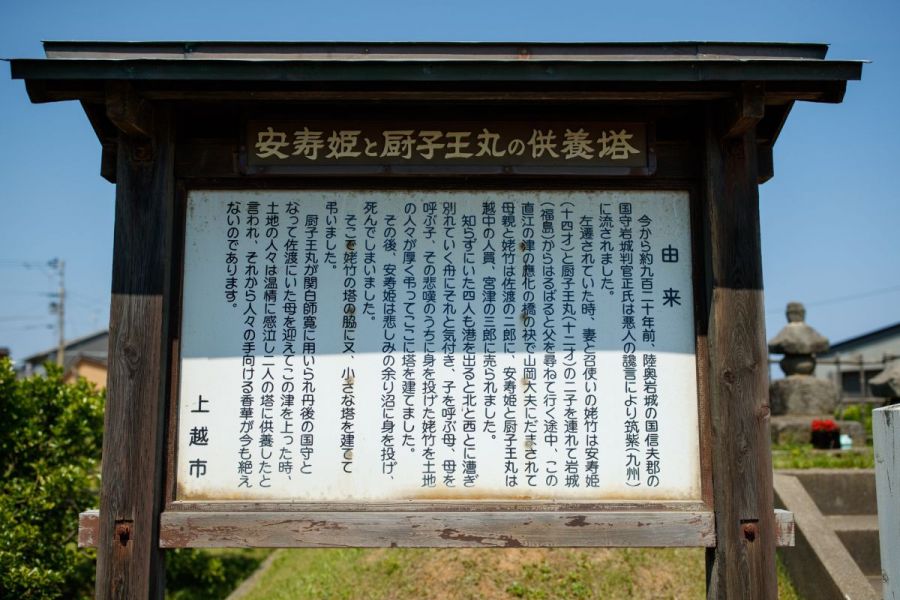 安寿姫と厨子王丸の供養塔
由来
今から約九百二十年前、陸奥岩城の国信夫郡の
国守岩城判官正氏は悪人の讒言により筑紫(九州)
に流されました。
左遷されていた時、妻と召使いの姥竹は安寿姫
(十四才)と厨子王丸(十二才)の二子を連れて岩城
(福島)からはるばると父を尋ねて行く途中、この
直江の津の應化の橋の袂で山岡大夫にだまされて
母親と姥竹は佐渡の二郎に、安寿姫と厨子王丸は
越中の人買、宮津三郎に売られました。
知らずにいた四人も港を出ると北と西とに漕ぎ
別れていく舟にそれと気付き、子を呼ぶ母、母を
呼ぶ子、その悲嘆のうちに身を投げた姥竹を土地
の人々が厚く弔ってここに塔を建てました。
その後、安寿姫は悲しみの余り沼に身を投げ、
死んでしまいました。
そこで姥竹の塔の脇に又、小さな塔を建てて
弔いました。
厨子王丸が関白師寛に用いられ丹後の国守と
なって佐渡にいた母を迎えてこの津を上った時、
土地の人々は温情に感泣し二人の塔に供養したと
言われ、それから人々の手向ける香華が今も絶え
ないのであります。
上越市